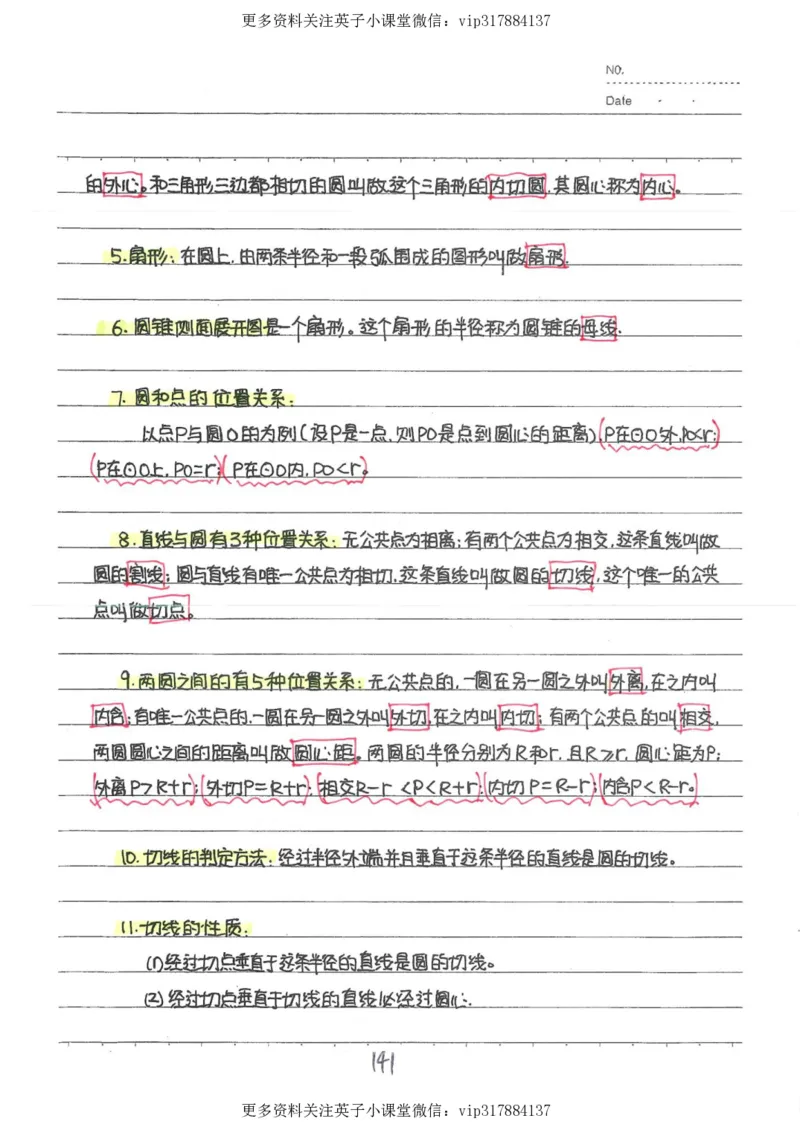 更多资料关注英子小课堂微信：vip317884137
NO.
Date
的外心。和三角形三边都相切的圆叫做这个三角形的内切圆，其圆心称为内心。
5.扇形：在圆上，由两条半径和一段弧围成的图形叫做扇形.
6.圆锥侧面展开图是一个扇形。这个扇形的半径称为圆锥的母线.
7.圆和点的位置关系：
以点P与圆O的为例(设P是一点，则PO是点到圆心的距离)，P在⊙O外，PO<r；
P在⊙O上，PO=r；P在⊙O内，PO<r。
8.直线与圆有3种位置关系：无公共点为相离；有两个公共点为相交，这条直线叫做
圆的割线；圆与直线有唯一公共点为相切，这条直线叫做圆的切线，这个唯一的公共
点叫做切点。
9.两圆之间的有5种位置关系：无公共点的，一圆在另一圆之外叫外离，在之内叫
内含；有唯一公共点的，一圆在另一圆之外叫外切，在之内叫内切；有两个公共点的叫相交，
两圆圆心之间的距离叫做圆心距。两圆的半径分别为R和r，且R≥r，圆心距为P；
外离P>R+r；外切P=R+r；相交R-r<P<R+r；内切P=R-r；内含P<R-r。
10.切线的判定方法：经过半径外端并且垂直于这条半径的直线是圆的切线。
11.切线的性质：
(1)经过切点垂直于这条半径的直线是圆的切线。
(2)经过切点垂直于切线的直线必经过圆心.
141
更多资料关注英子小课堂微信：vip317884137